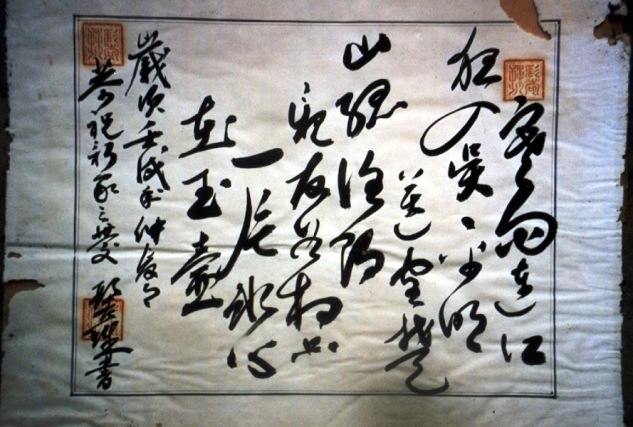 寒雨連江
夜入吳平明
送客楚
山孤洛陽
親友若相問
一片冰心
在玉壺
歲次壬戌年仲夏月
恭祝之慶書